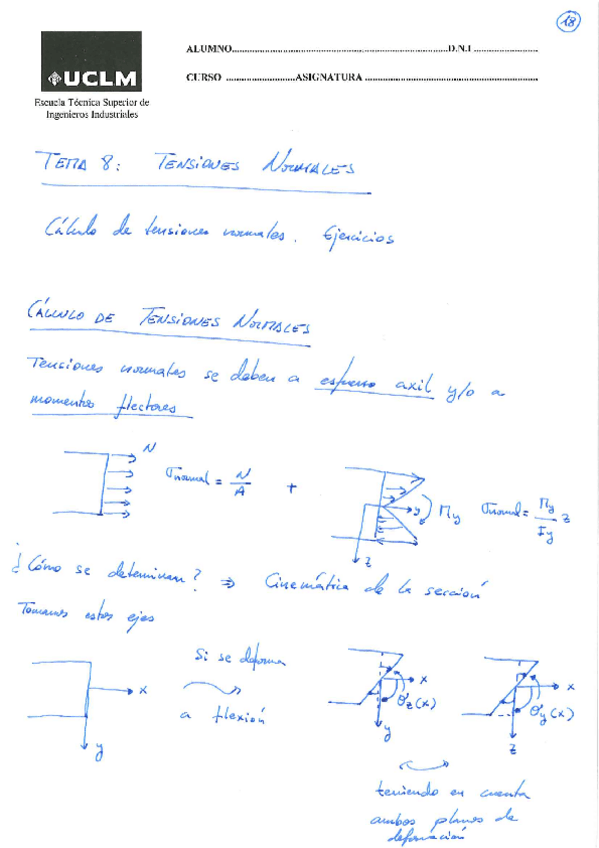 18
UCLM
Escuela Técnica Superior de
Ingenieros Industriales
ALUMNO..........D.N.I..........
CURSO ..........ASIGNATURA ..........
TEMA 8: TENSIONES NORMALES
Cálculo de tensiones normales. Ejercicios
CÁLCULO DE TENSIONES NORMALES
Tensiones normales se deben a esfuerzo axil y/o a
momentos flectores
N
σnormal = N/A + y My σnormal = My/Iy z
z
¿Cómo se determinan? ⇒ Cinemática de la sección
Tomamos estos ejes
x y
Si se deforma
a flexión
x θz(x) y
x θy(x) z
teniendo en cuenta
ambos planos de
deformación